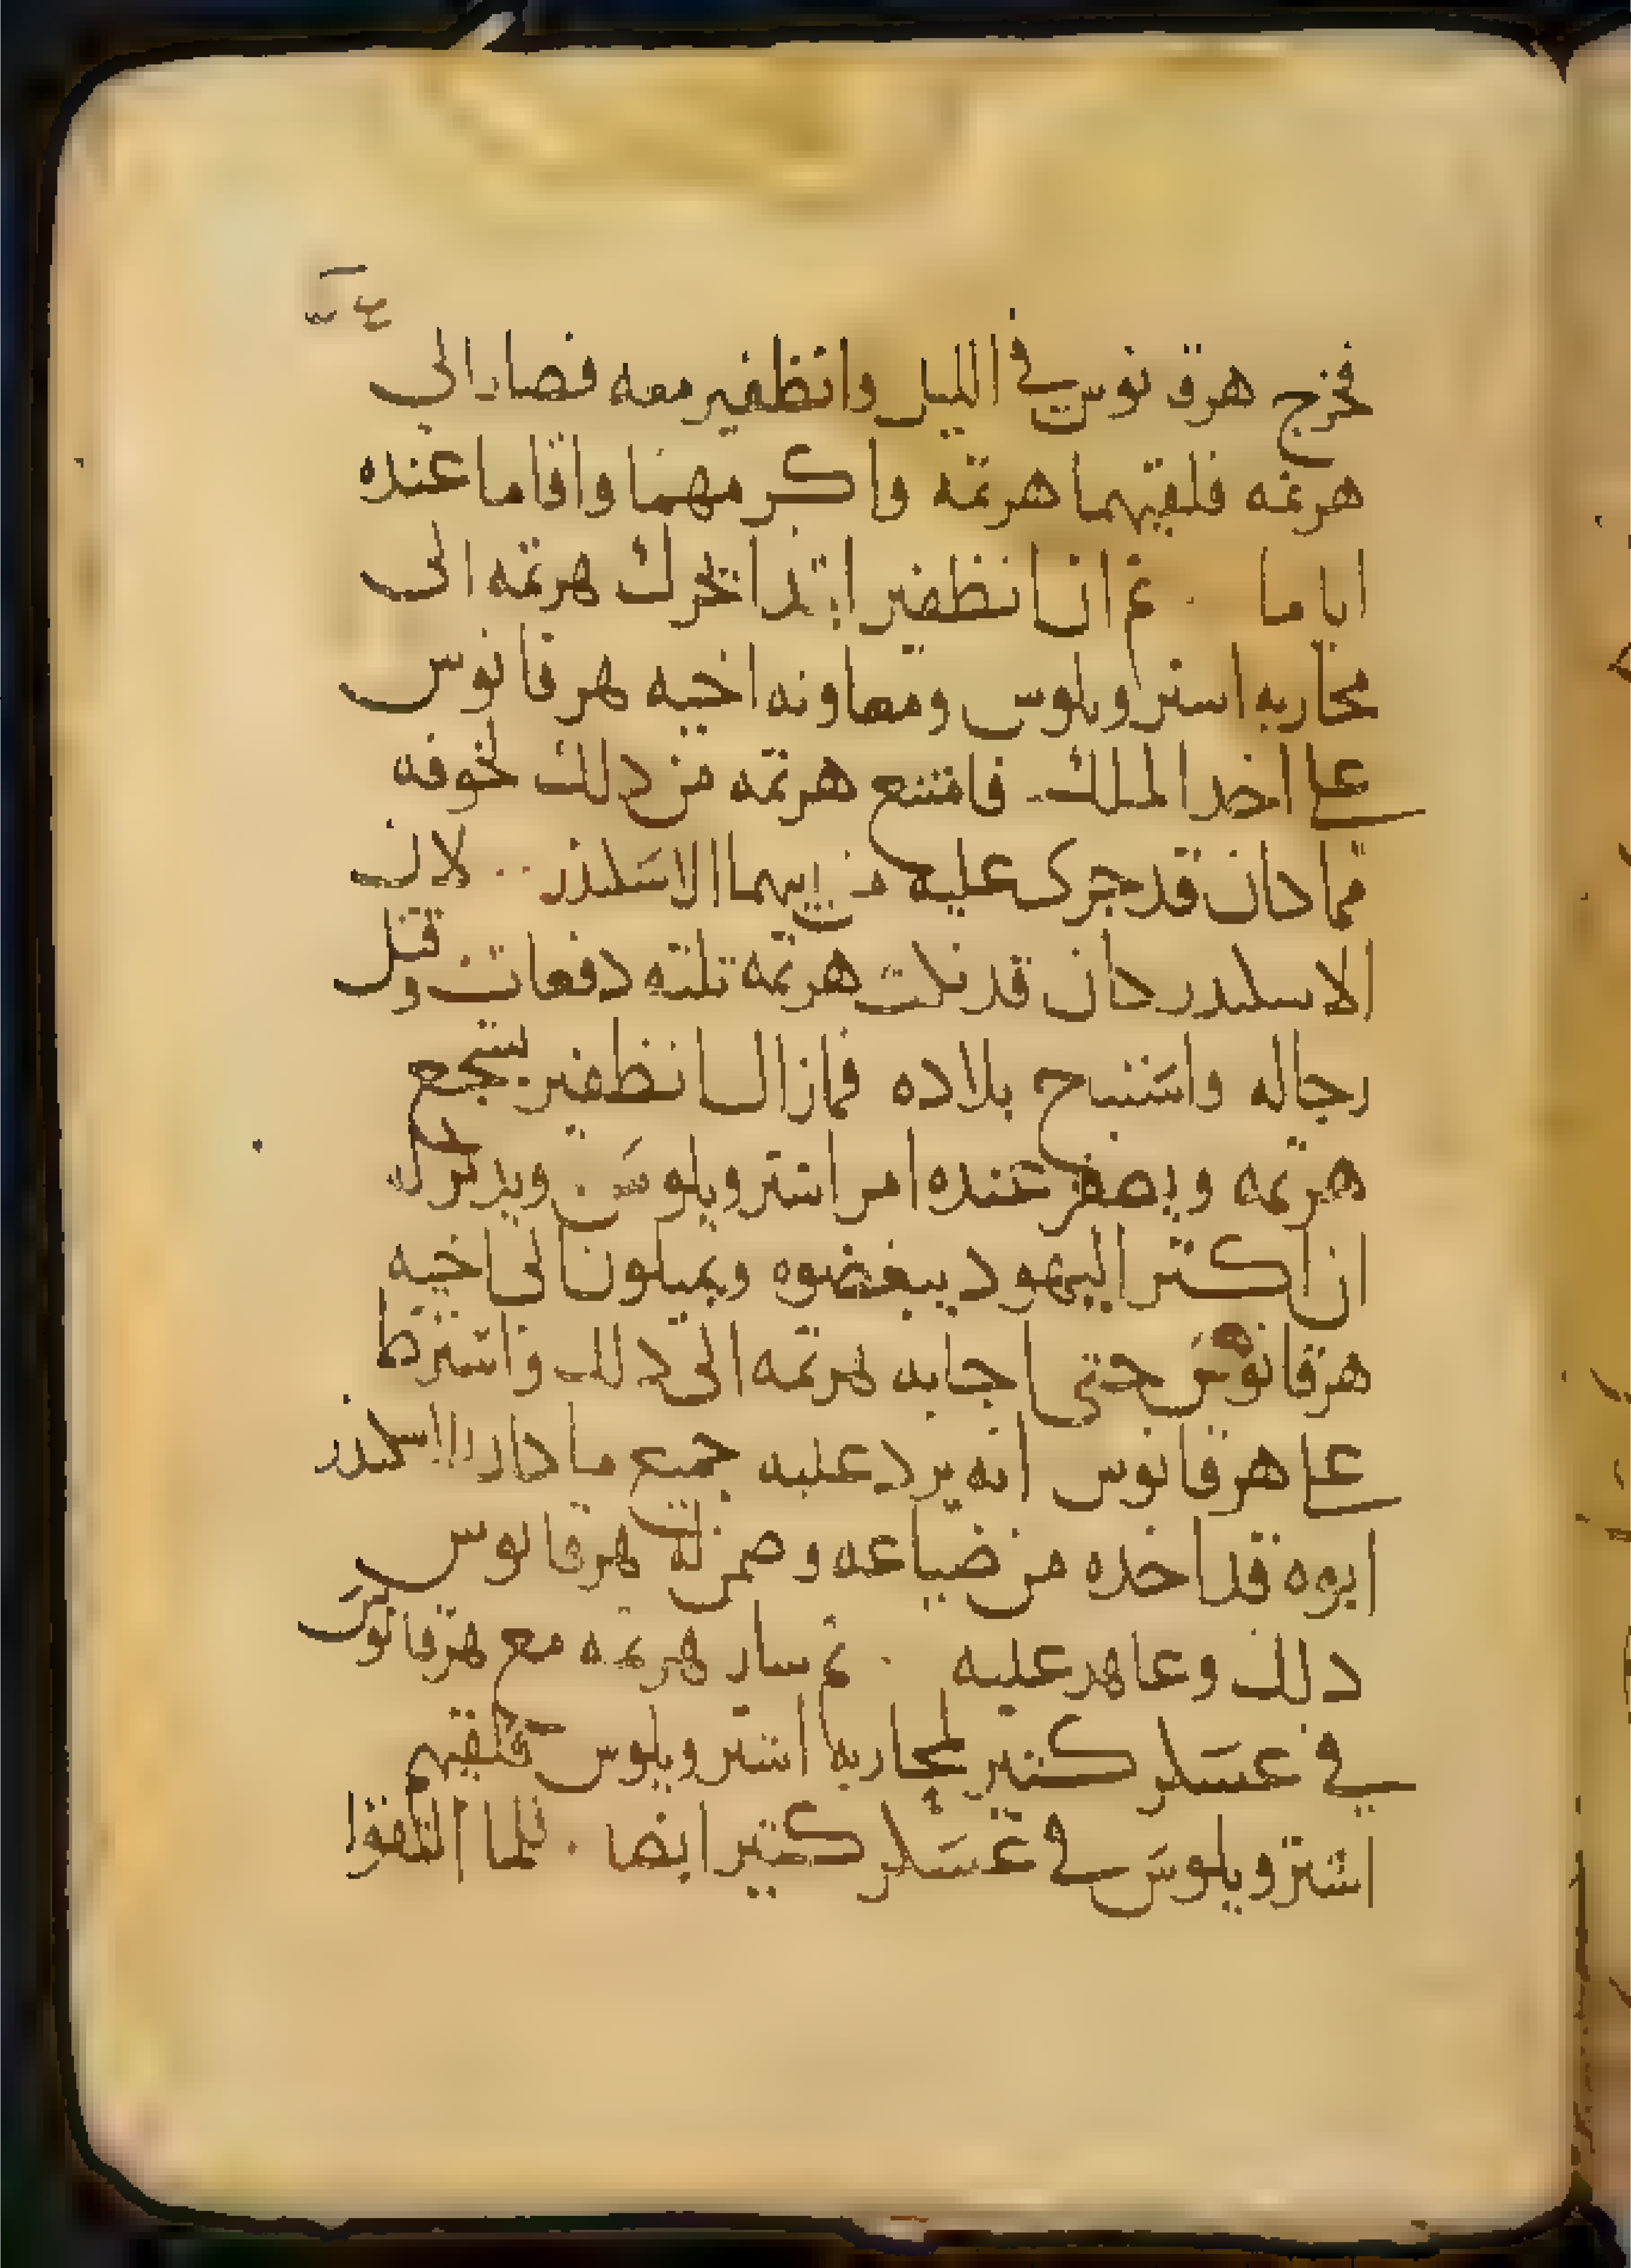 فخرج هرقنوس في الليل وانظفير معه فصارا الى
هرتمه فلقيهما هرتمه واكرمهما واقاما عنده
اياما . ثم ان انظفير ابتدا يحرك هرتمه الى
محاربه استروبلوس ومعاونه اخيه هرقانوس
على اخد الملك . فامتنع هرتمه من دلك لخوفه
مما كان قد جرى عليه من الاسكندر . . لان
الاسكندر كان قد نكت هرتمه تلته دفعات وقتل
رجاله واستبح بلاده فمازال انظفير يشجع
هرتمه ويصغر عنده امر اشتروبلوس . ويدكر له
ان اكتر اليهود يبغضوه ويميلون الى اخيه
هرقانوس حتى اجابه هرتمه الى دلك واشترط
على هرقانوس انه يرد عليه جميع ما كان الاسكندر
ابوه قد اخده من ضياعه وضمن له هرقانوس
دلك وعاهد عليه . ثم سار هرتمه مع هرقانوس
في عسكر كتير لمحاربه اشتروبلوس فلقيهم
اشتروبلوس في عسكر كتير ايضا . فلما التقوا